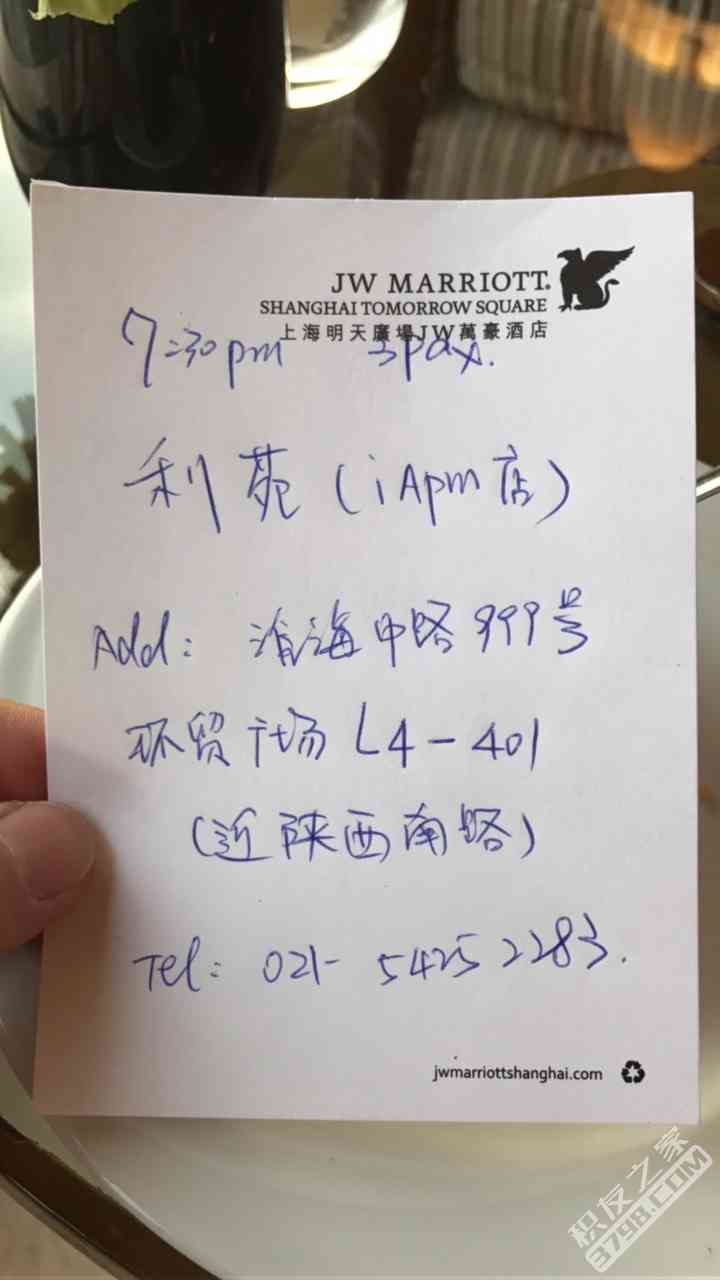 JW MARRIOTT®
SHANGHAI TOMORROW SQUARE
上海明天廣場JW萬豪酒店
7:30pm 3pax.
利苑(iApm店)
Add: 淮海中路999号
环贸广场L4-401
(近陕西南路)
Tel: 021-54252283.
jwmarriottshanghai.com
积友之家
3798.COM